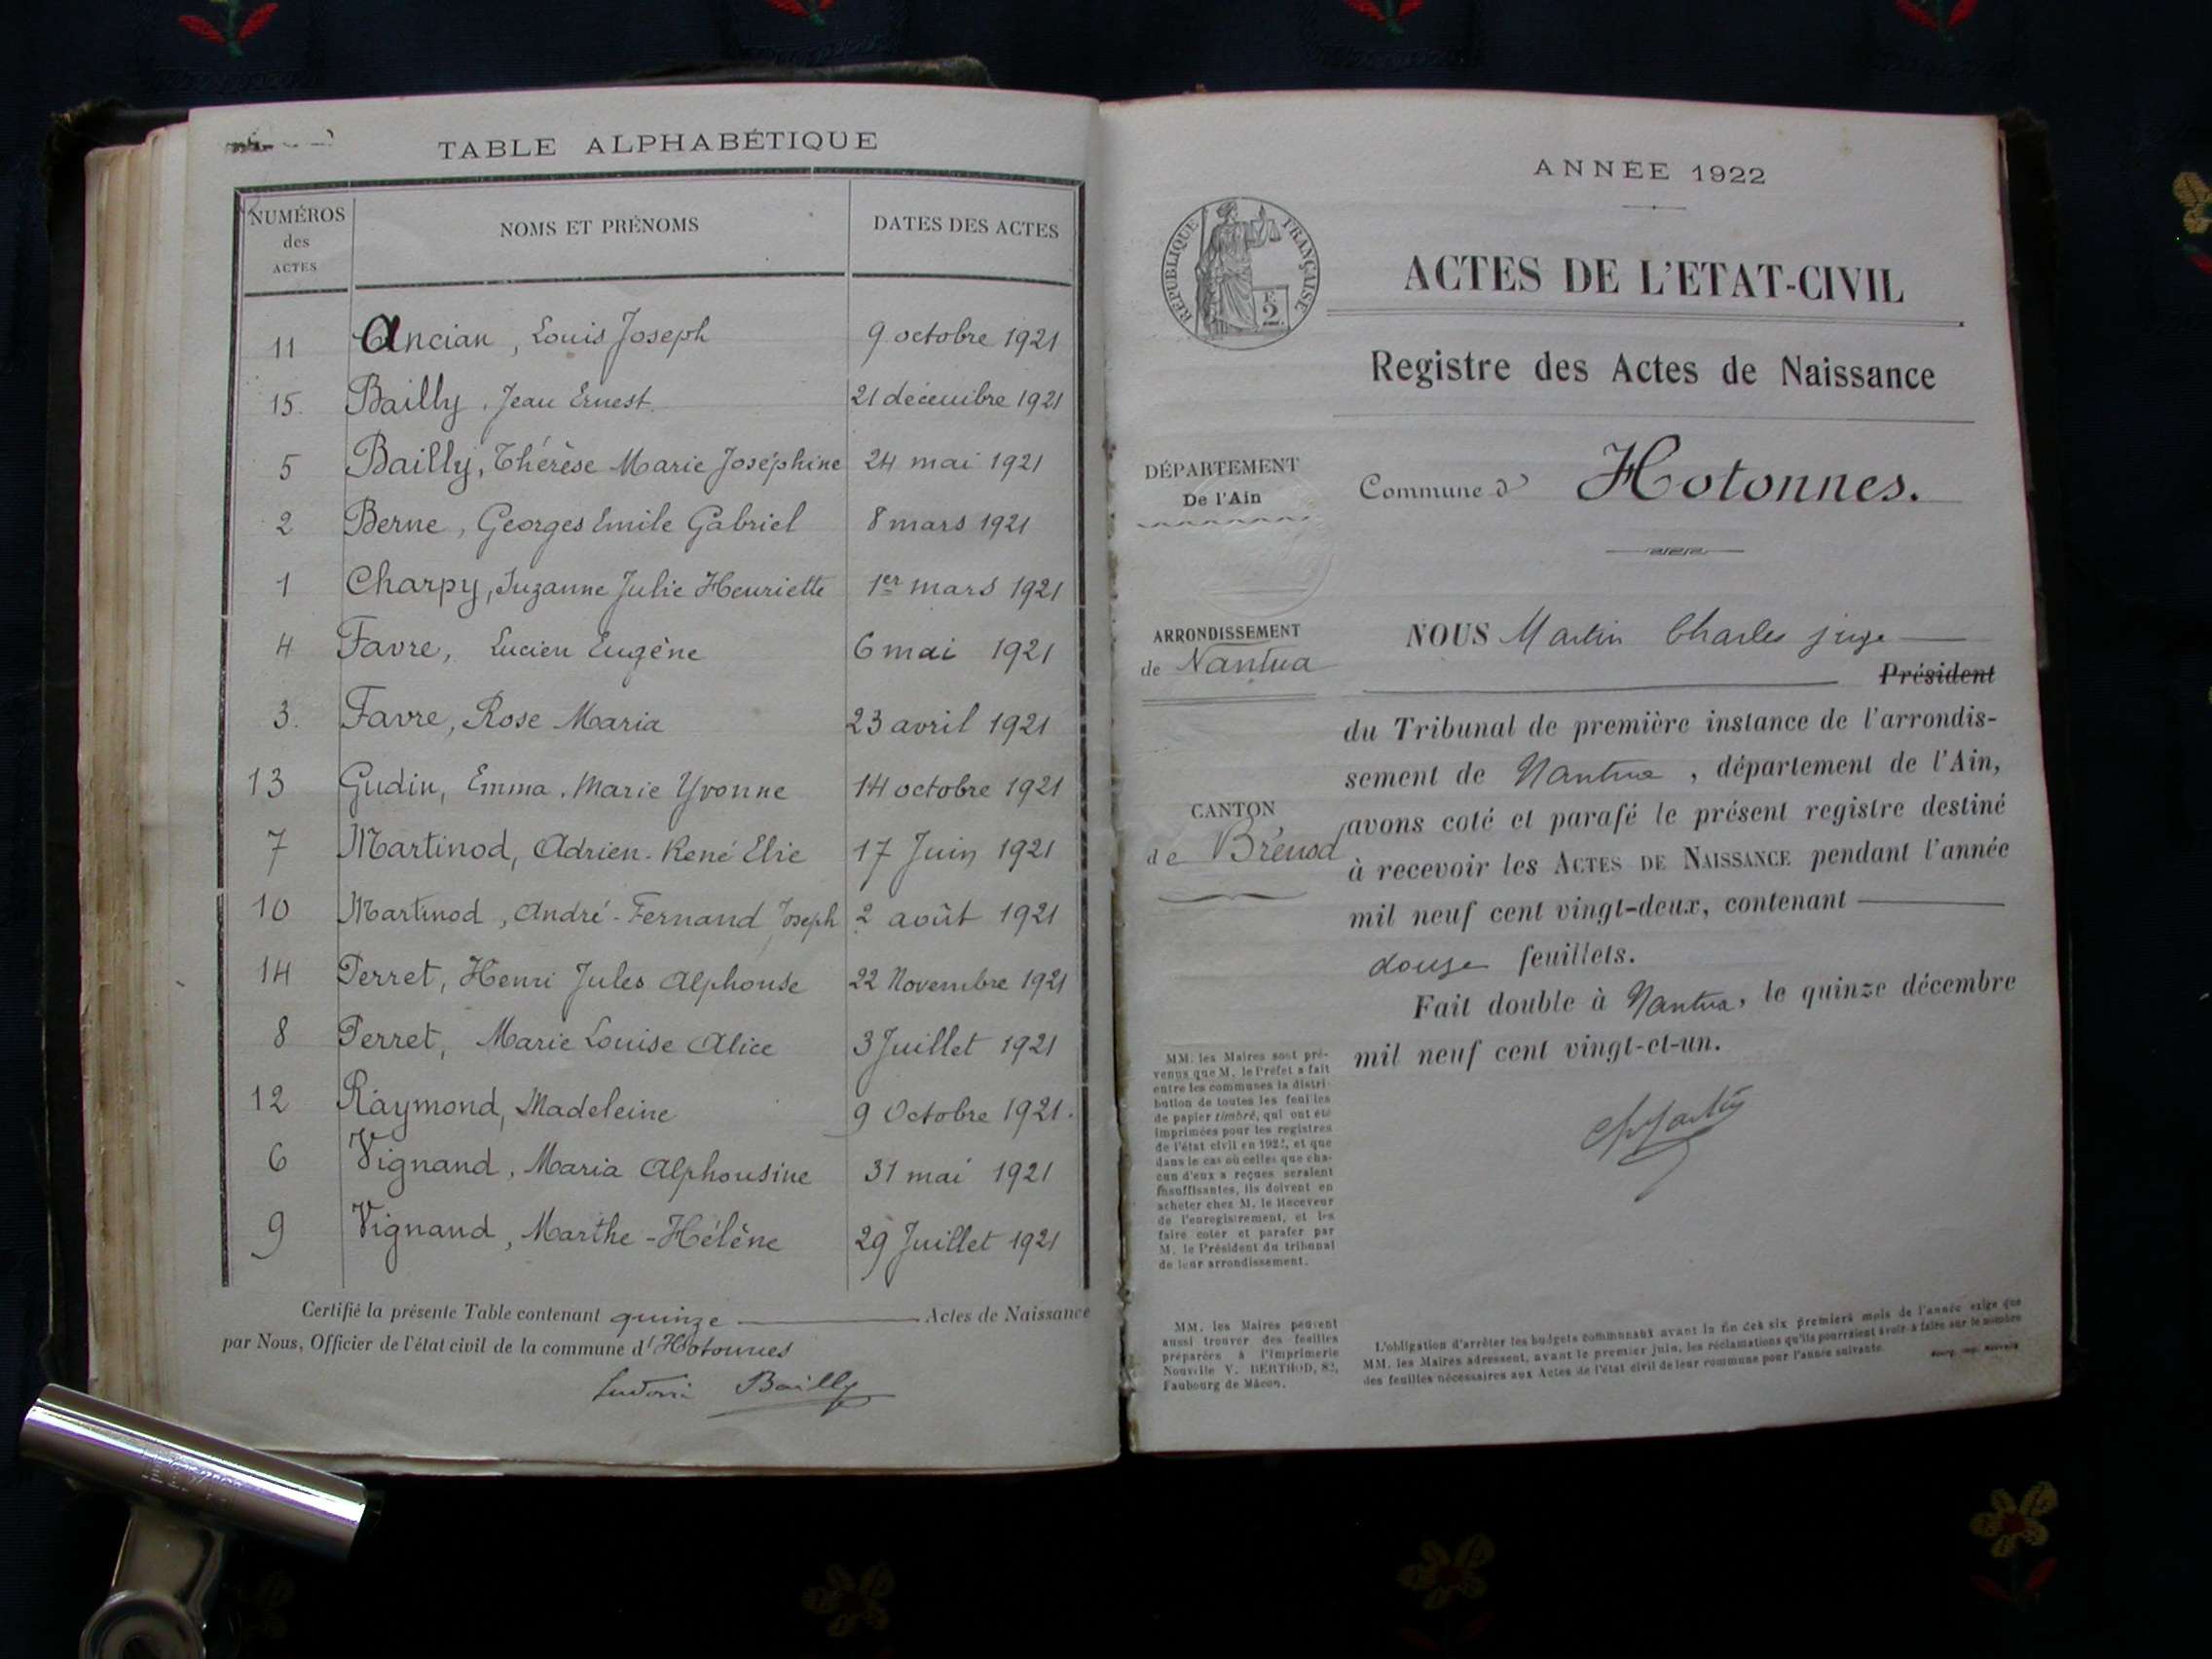 TABLE ALPHABÉTIQUE
NUMÉROS des ACTES
NOMS ET PRÉNOMS
DATES DES ACTES
11 Ancian, Louis Joseph 9 octobre 1921
15. Bailly, Jean Ernest. 21 décembre 1921
5 Bailly, Thérèse Marie Joséphine 24 mai 1921
2 Berne, Georges Emile Gabriel 8 mars 1921
1 Charpy, Suzanne Julie Henriette 1er mars 1921
4 Favre, Lucien Eugène 6 mai 1921
3. Favre, Rose Maria 23 avril 1921
13 Gudin, Emma. Marie Yvonne 14 octobre 1921
7 Martinod, Adrien-René Elie 17 Juin 1921
10 Martinod, André-Fernand Joseph 2 août 1921
14 Perret, Henri Jules Alphonse 22 Novembre 1921
8 Perret, Marie Louise Alice 3 Juillet 1921
12 Raymond, Madeleine 9 Octobre 1921.
6 Vignand, Maria Alphonsine 31 mai 1921
9 Vignand, Marthe-Hélène 29 Juillet 1921
Certifié la présente Table contenant quinze Actes de Naissance
par Nous, Officier de l'état civil de la commune d'Hotonnes
Bailly
ANNÉE 1922
RÉPUBLIQUE FRANÇAISE
2
ACTES DE L'ETAT-CIVIL
Registre des Actes de Naissance
DÉPARTEMENT
De l'Ain
Commune d' Hotonnes.
ARRONDISSEMENT
de Nantua
CANTON
de Brénod
NOUS Martin Charles juge
Président
du Tribunal de première instance de l'arrondis-
sement de Nantua, département de l'Ain,
avons coté et parafé le présent registre destiné
à recevoir les ACTES DE NAISSANCE pendant l'année
mil neuf cent vingt-deux, contenant
douze feuillets.
Fait double à Nantua, le quinze décembre
mil neuf cent vingt-et-un.
MM. les Maires sont pré-
venus que M. le Préfet a fait
entre les communes la distri-
bution de toutes les feuilles
de papier timbré, qui ont été
imprimées pour les registres
de l'état civil en 1922, et que
dans le cas où celles que cha-
cun d'eux a reçues seraient
insuffisantes, ils doivent en
acheter chez M. le Receveur
de l'enregistrement, et les
faire coter et parafer par
M. le Président du tribunal
de leur arrondissement.
MM. les Maires peuvent
aussi trouver des feuilles
préparées à l'Imprimerie
Nouvelle V. BERTHOD, 82,
Faubourg de Mâcon.
L'obligation d'arrêter les budgets communaux avant la fin des six premiers mois de l'année exige que
MM. les Maires adressent, avant le premier juin, les réclamations qu'ils pourraient avoir à faire sur le nombre
des feuilles nécessaires aux Actes de l'état civil de leur commune pour l'année suivante.
Bourg, imp. Nouvelle